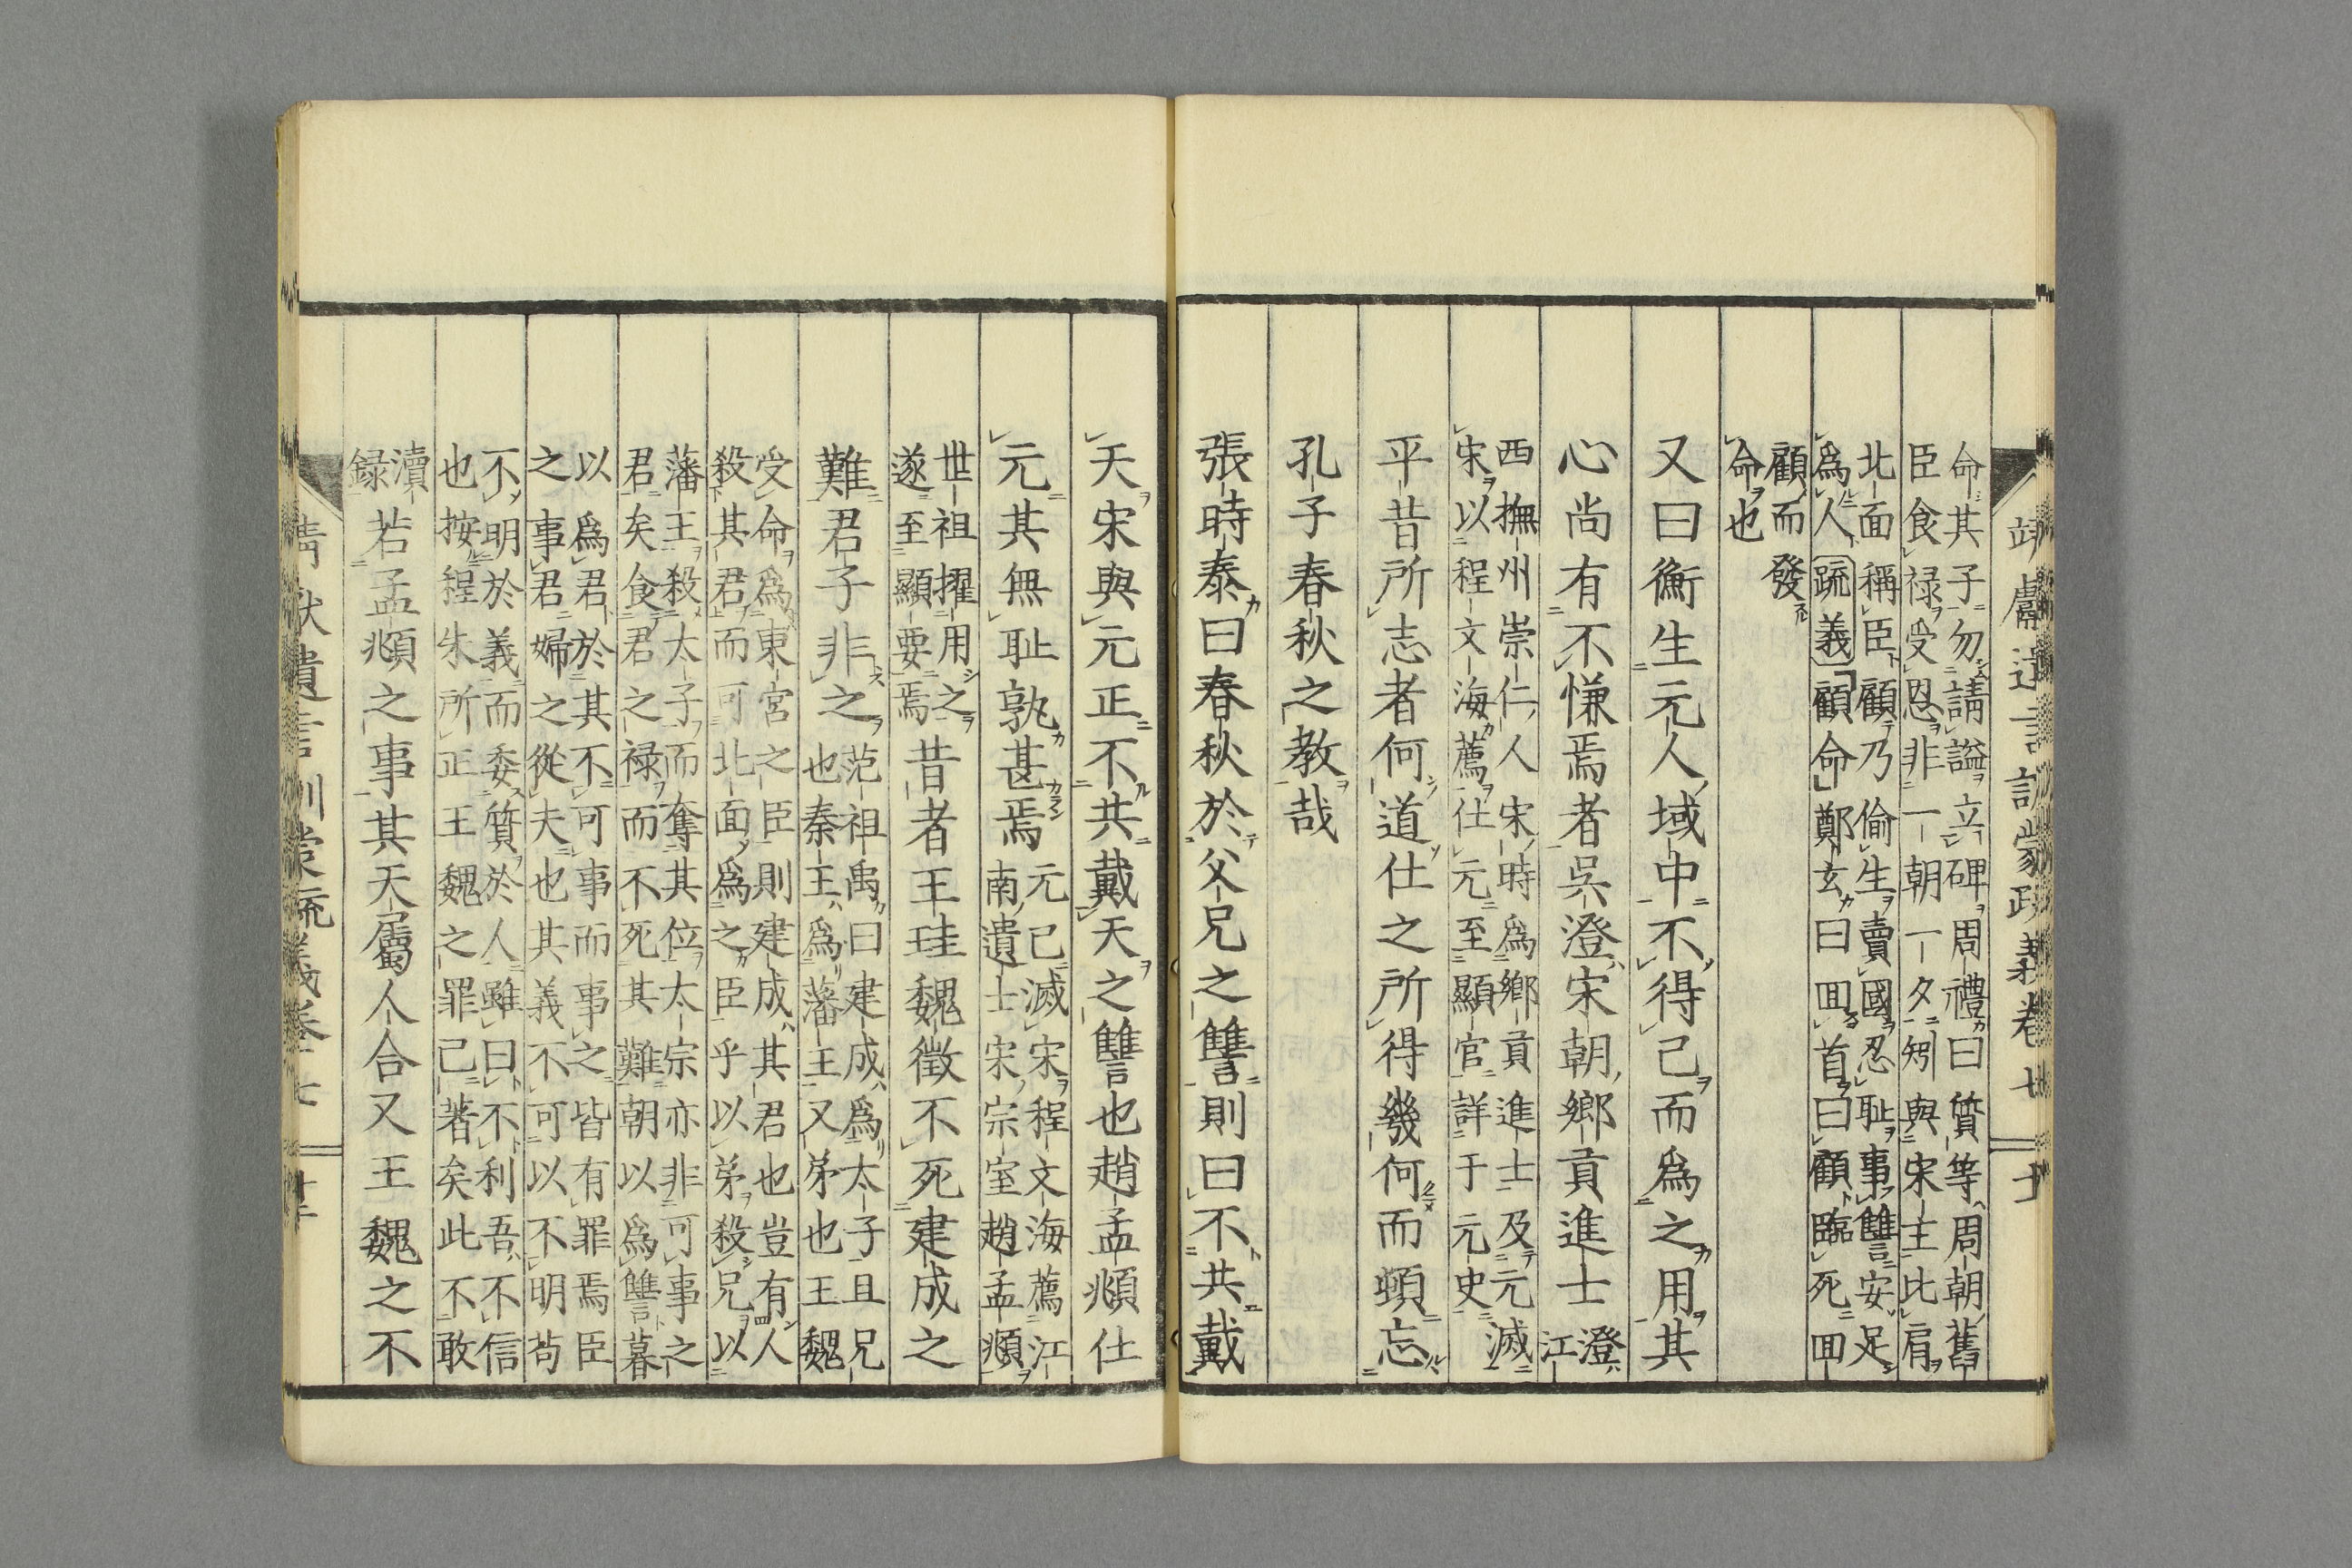 命其子勿請謚立碑周禮曰質等周朝舊
臣食禄受恩非一朝一夕矧與宋主比肩
北面稱臣顧乃偷生賣國忍耻事讐安足
爲人疏義顧命鄭玄曰回首曰顧臨死回
顧而發
命也
又曰衡生元人域中不得已而爲之用其
心尚有不慊焉者吳澄宋朝鄉貢進士澄江
西撫州崇仁人宋時爲鄉貢進士及元滅
宋以程文海薦仕元至顯官詳于元史
平昔所志者何道仕之所得幾何而頓忘
孔子春秋之教哉
張時泰曰春秋於父兄之讐則曰不共戴
天宋與元正不共戴天之讐也趙孟頫仕
元其無耻孰甚焉元已滅宋程文海薦江
南遺士宋宗室趙孟頫
世祖擢用之
遂至顯要焉昔者王珪魏徵不死建成之
難君子非之范祖禹曰建成爲太子且兄
也秦王爲藩王又弟也王魏
受命爲東宮之臣則建成其君也豈有人
殺其君而可北面爲之臣乎以弟殺兄以
藩王殺太子而奪其位太宗亦非可事之
君矣食君之禄而不死其難朝以爲讐暮
以爲君於其不可事而事之皆有罪焉臣
之事君婦之從夫也其義不可以不明苟
不明於義而委質於人雖曰不利吾不信
也按程朱所正王魏之罪已著矣此不敢
瀆
録若孟頫之事其天屬人合又王魏之不